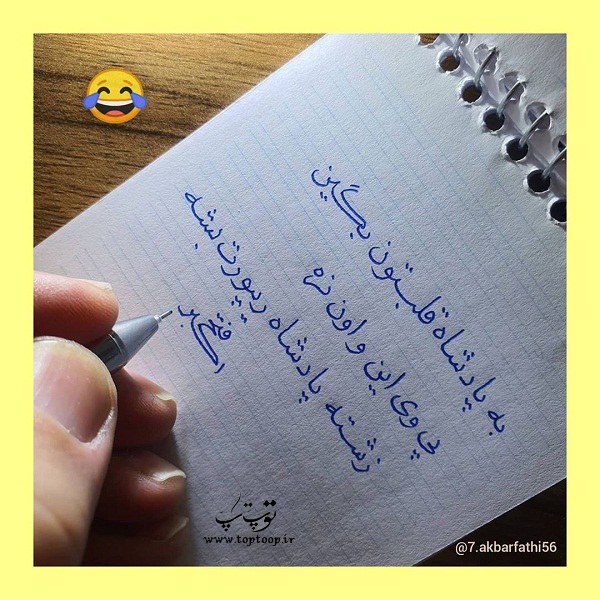 به پادشاه قلبتون بگین
پی وی این و اون نره
زشته پادشاه ریپورت بشه
اکبر فتحی
توپ تاپ
www.toptoop.ir
@7.akbarfathi56